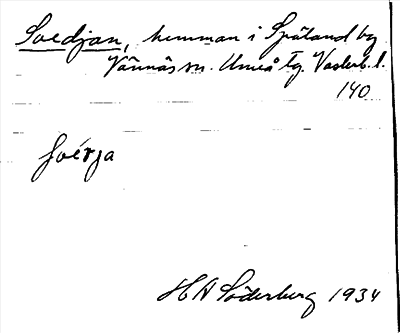 Svedjan, hemman i Spöland by
Vännäs sn. Umeå tg. Västerb. l.
140.
Svérja
H A Söderberg 1934